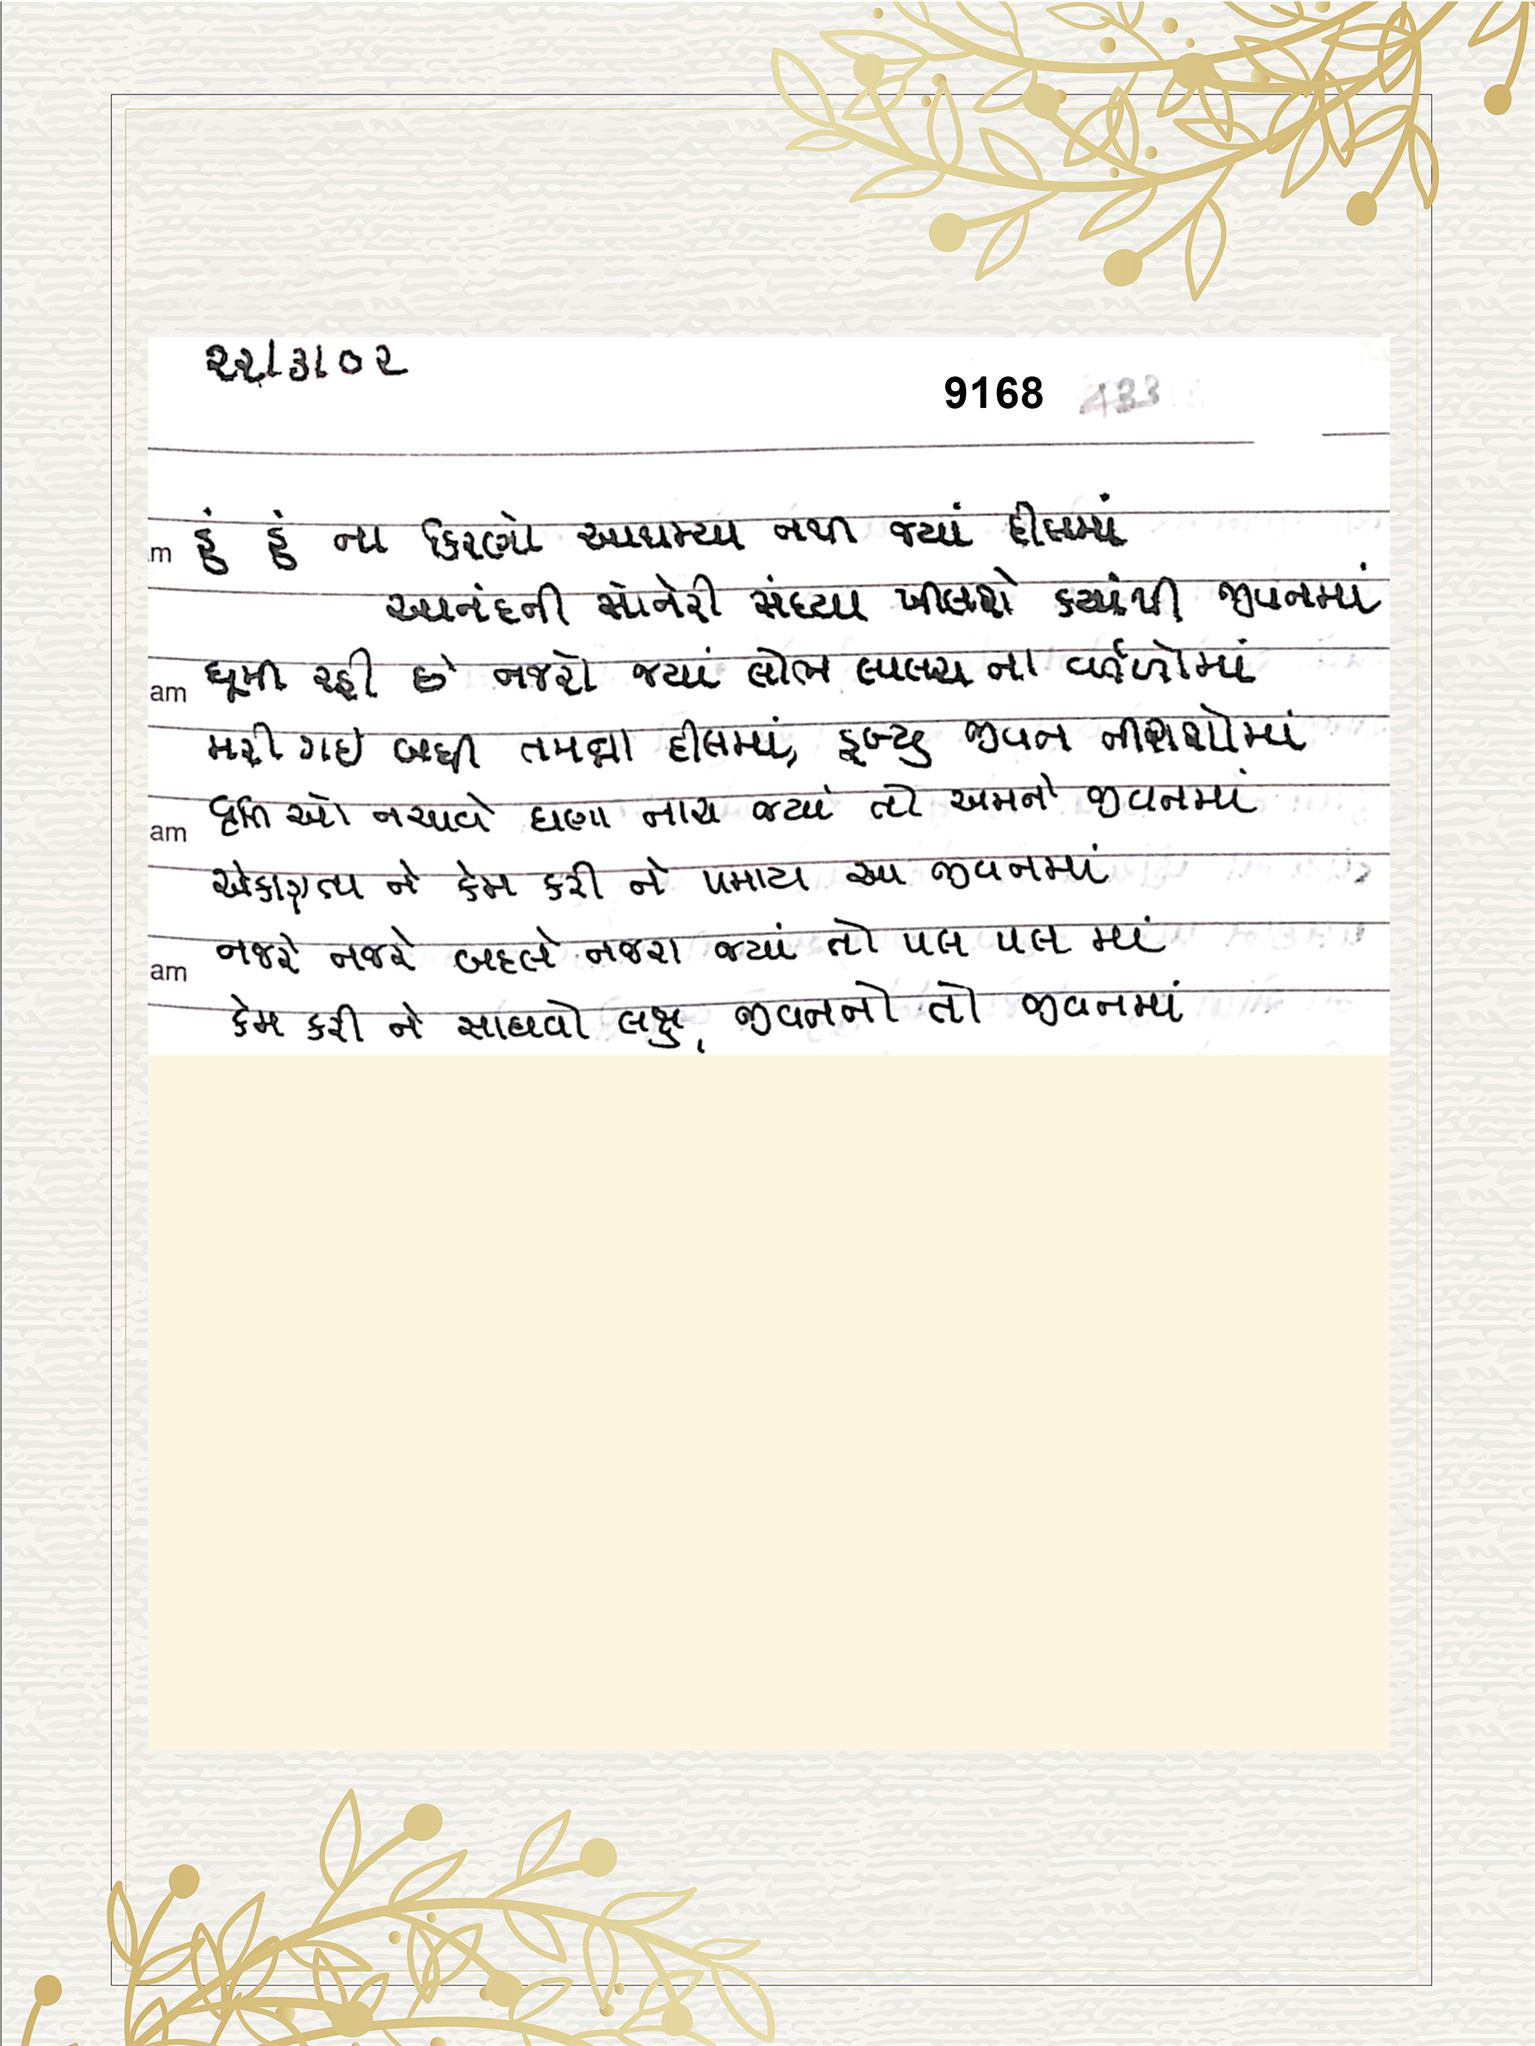 ૨૨/૩/૦૨
9168
હું હું ના કિરણો આથમ્યા નથી જ્યાં દીલમાં
આનંદની સોનેરી સંધ્યા ખીલશે ક્યાંથી જીવનમાં
am ઘૂમી રહી છે નજરો જ્યાં લોભ લાલચ ના વર્તુળોમાં
મરી ગઈ બધી તમન્ના દીલમાં, ડૂબ્યુ જીવન
am વૃત્તિ ઓ નચાવે ઘણા નાચ જ્યાં તો અમને જીવનમાં
એકાગ્રતા ને કેમ કરી ને પમાય આ જીવનમાં
am નજરે નજરે બદલે નજારા જ્યાં તો પલ પલ માં
કેમ કરી ને સાધવો લક્ષ, જીવનનો તો જીવનમાં